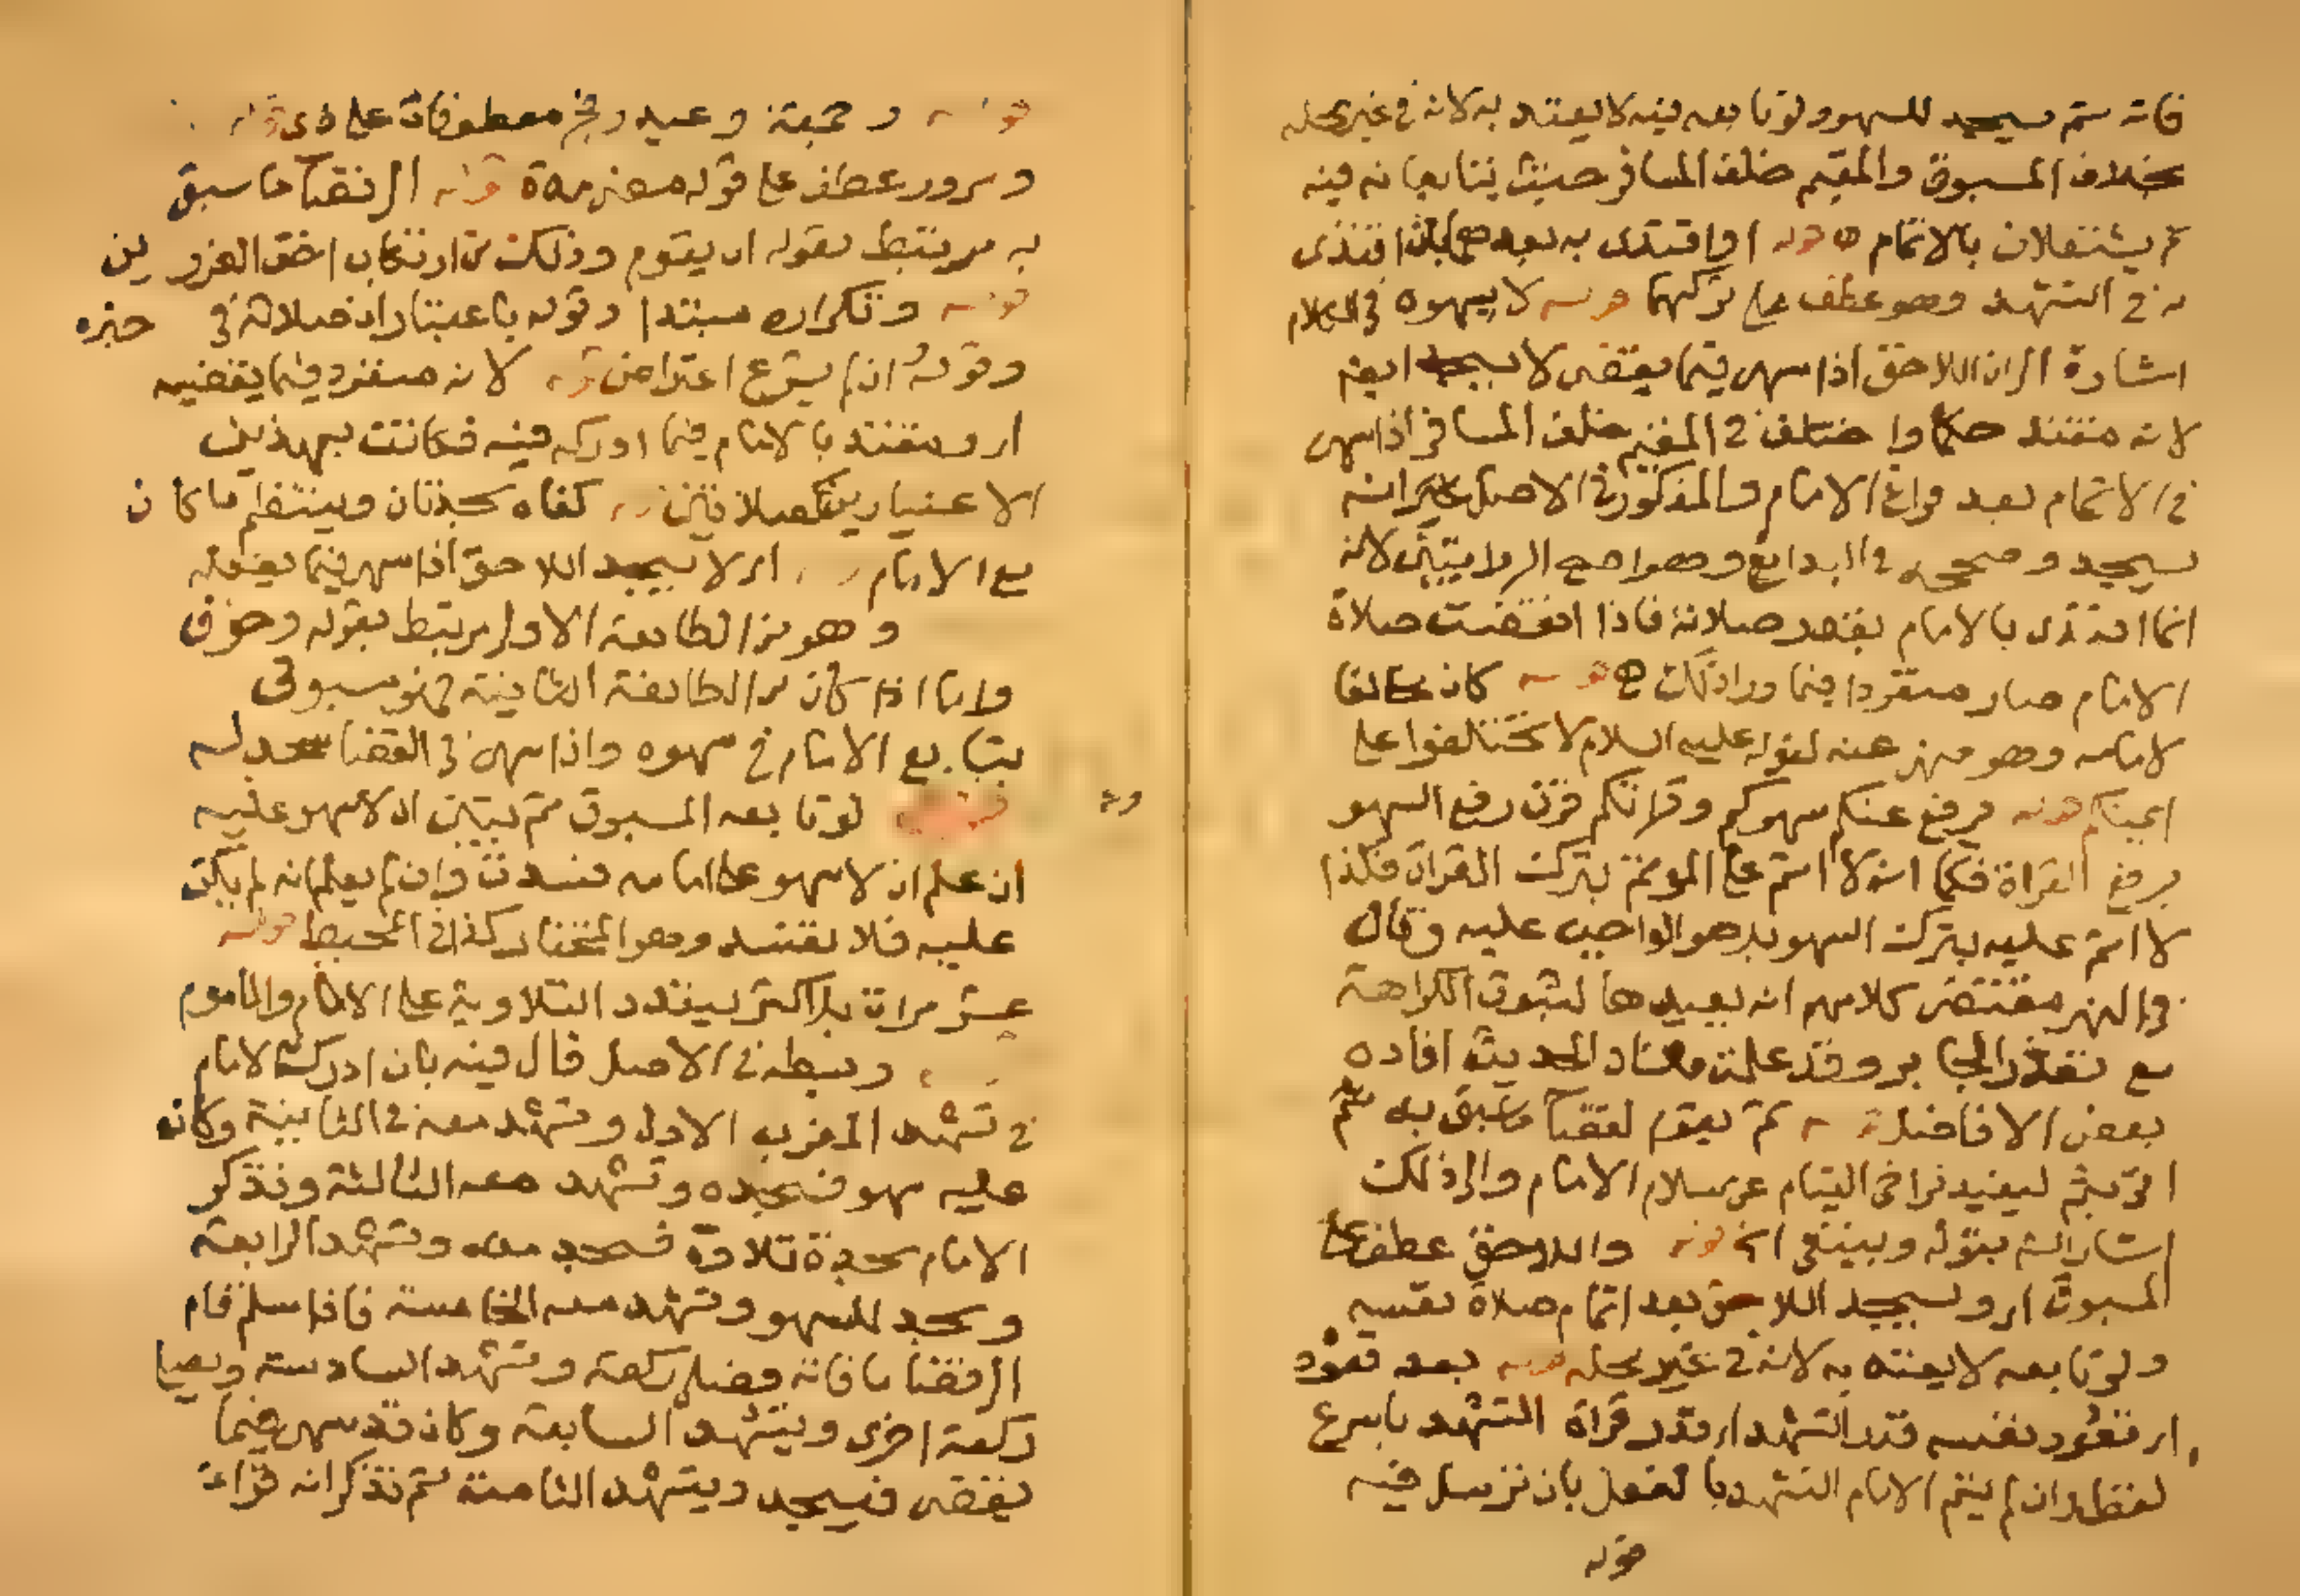 فاته ثم يسجد للسهو ولو تابعه فيه لا يعتد به لانه في غير محله
بخلاف المسبوق والمقيم خلف المسافر حيث يتابعانه فيه
ثم يشتغلان بالاتمام قوله او اقتدى به بعد
في التشهد وهو عطف على تركهما قوله لا بسهوه في الكلام
اشارة الى ان اللاحق اذا سهى فيما يقضى لا يسجد ايضا
لانه مقتد حكما واختلف في المقيم خلف المسافر اذا سهى
في الاتمام بعد فراغ الامام والمذكور في الاصل انه
يسجد وصححه في البدايع وهو اصح الروايتين لانه
انما اقتدى بالامام بقدر صلاته فاذا انقضت صلاة
الامام صار منفردا فيما وراذلك قوله كان مخالفا
لامامه وهو منهى عنه لقوله عليه السلام لا تختلفوا على
ايمتكم قوله يرفع عنكم سهوكم وقراتكم قرن رفع السهو
برفع القراة فكما انه لا اثم على الموتم بترك القراة فكذا
لا اثم عليه بترك السهو بل هو الواجب عليه وقال
في النهر مقتضى كلامهم انه يعيدها لثبوت الكراهة
مع تعذر الجابر وقد علمت مفاد الحديث افاده
بعض الافاضل قوله ثم يقوم لقضا ما سبق به
اتى بثم ليفيد تراخى القيام عن سلام الامام والى ذلك
اشار اليه بقوله وينبغى الخ قوله واللاحق عطف على
المسبوق اى ويسجد اللاحق بعد اتمام صلاة نفسه
ولو تابعه لا يعتد به لانه في غير محله قوله بعد قعود
اى قعود نفسه قدر التشهد اى قدر قراة التشهد باسرع
لفظ وان لم يتم الامام التشهد بالفعل بان ترسل فيه
قوله
قوله وجمعة وعيد وفجر معطوفات على ذى قوله
ومرور عطف على قوله قوله الى قضا ما سبق
به مرتبط بقوله ان يقوم وذلك من ارتكاب اخف الضررين
قوله وتكراره مبتدا وقوله باعتبار ان صلاته في خبره
وقوله ان لم يشرع اعتراض قوله لانه منفرد فيما يقضيه
اى ومقتد بالامام فيما ادركه فيه فكانت بهذين
الاعتبارين كصلاتين كفاه سجدتان وينتظم ما كان
مع الامام اى لا يسجد اللاحق اذا سهى فيما يفعله
وهو من الطايفة الاولى مرتبط بقوله وخوف
واما اذا كان من الطايفة الثانية فهو مسبوق
يتابع الامام في سهوه واذا سهى في القضا سجد له
لو تابعه المسبوق ثم تبين ان لا سهو عليه
ان علم ان لا سهو على امامه فسدت وان لم يعلم انه لم يكن
عليه فلا تفسد وهو المختار كذا في المحيط قوله
عشر مرات بل اكثر ليتعدد التلاوية على الامام والماموم
وبسطه في الاصل قال فيه بان ادرك الامام
في تشهد المغرب الاول وتشهد معه في الثانية وكان
عليه سهو فسجده وتشهد معه الثالثة وتذكر
الامام سجدة تلاوة فسجد معه وتشهد الرابعة
وسجد للسهو وتشهد معه الخامسة فاذا سلم قام
الى قضا ما فاته فصلى ركعة وتشهد السادسة ويصلى
ركعة اخرى ويتشهد السابعة وكان قد سهى فيما
يقضى فيسجد ويتشهد الثامنة ثم تذكر انه قراء